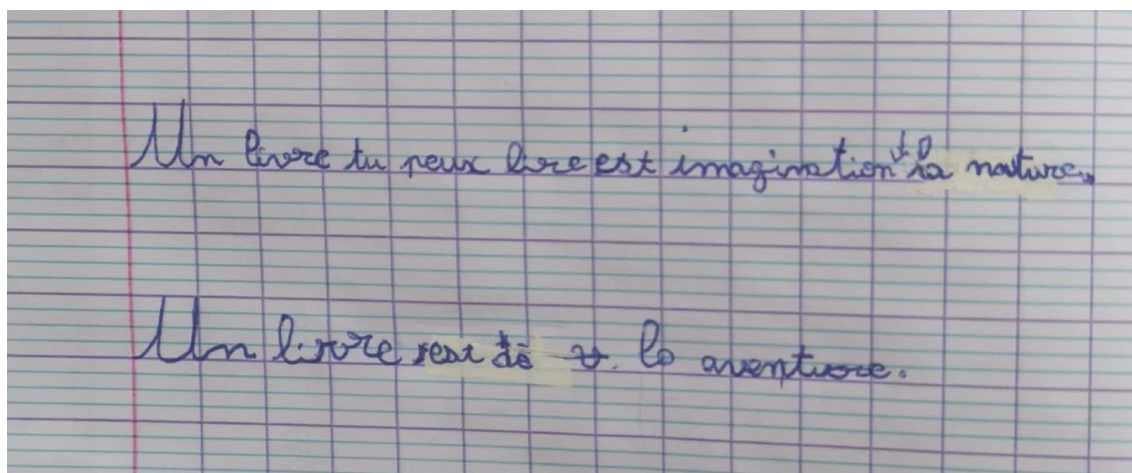 Un livre tu peux lire est imagination la nature.
Un livre est de lo aventure.